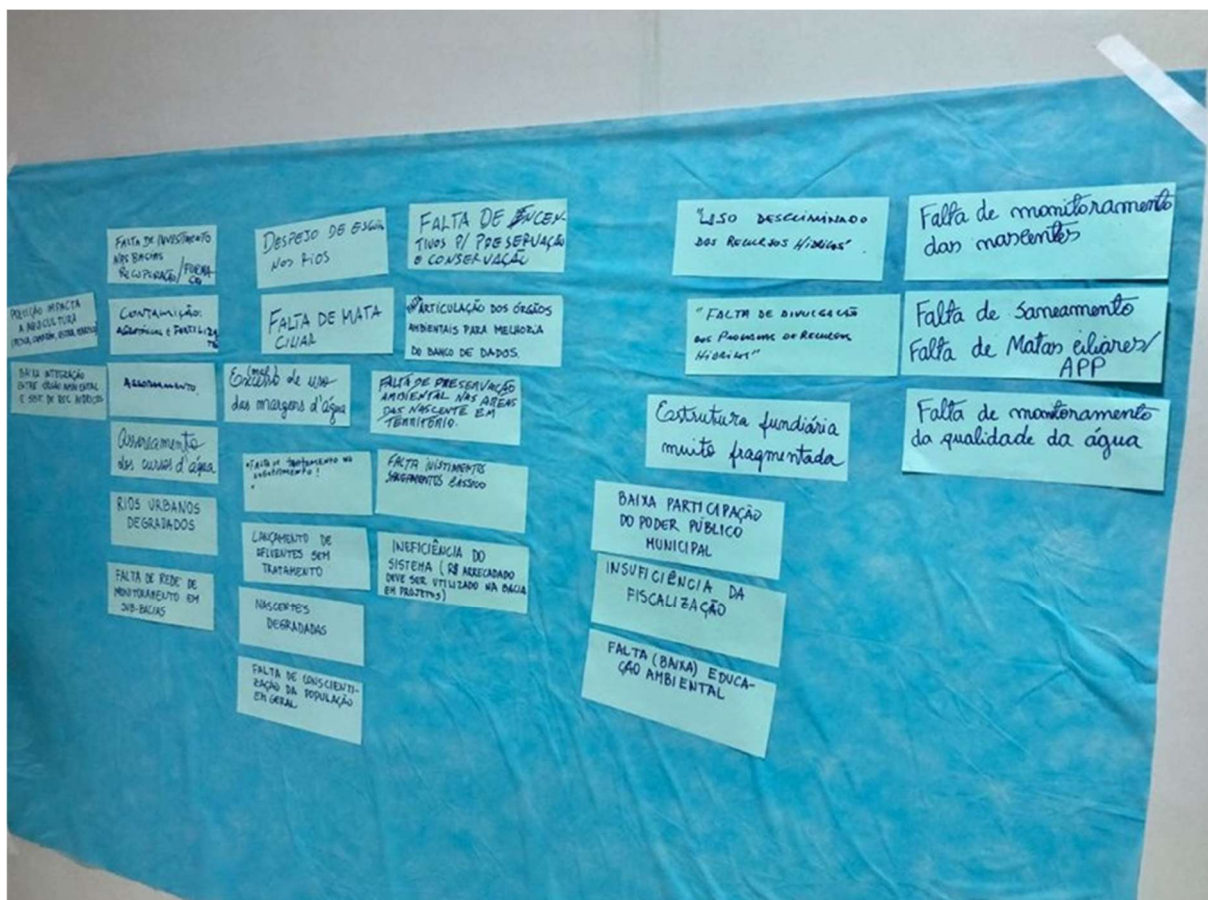 POLUIÇÃO IMPACTA
A AGRICULTURA
BAIXA INTEGRAÇÃO
ENTRE ÓRGÃO AMBIENTAL
E SIST. DE REC. HÍDRICOS
FALTA DE INVESTIMENTO
NAS BACIAS
RECUPERAÇÃO/
CONTAMINAÇÃO:
AGROTÓXICOS E FERTILIZA
ASSOREAMENTO.
Assoreamento
dos cursos d'água
RIOS URBANOS
DEGRADADOS
FALTA DE REDE DE
MONITORAMENTO EM
SUB-BACIAS
DESPEJO DE ESGOTO
NOS RIOS
FALTA DE MATA
CILIAR
Excesso de uso
das margens d'água
FALTA DE TRATAMENTO NO
LANÇAMENTO DE
EFLUENTES SEM
TRATAMENTO
NASCENTES
DEGRADADAS
FALTA DE CONSCIENTI-
ZAÇÃO DA POPULAÇÃO
EM GERAL
FALTA DE INCEN-
TIVOS P/ PRESERVAÇÃO
E CONSERVAÇÃO
ARTICULAÇÃO DOS ÓRGÃOS
AMBIENTAIS PARA MELHORIA
DO BANCO DE DADOS.
FALTA DE PRESERVAÇÃO
AMBIENTAL NAS ÁREAS
DAS NASCENTE EM
TERRITÓRIO.
FALTA
BÁSSICO
INEFICIÊNCIA DO
SISTEMA (R$ ARRECADADO
DEVE SER UTILIZADO NA BACIA
EM PROJETOS)
"USO DESCRIMINADO
DOS RECURSOS HÍDRICOS"
"FALTA DE DIVULGAÇÃO
DOS PROGRAMAS DE RECURSOS
HÍDRICOS"
Estrutura fundiária
muito fragmentada
BAIXA PARTICIPAÇÃO
DO PODER PÚBLICO
MUNICIPAL
INSUFICIÊNCIA DA
FISCALIZAÇÃO
FALTA (BAIXA) EDUCA-
ÇÃO AMBIENTAL
Falta de monitoramento
das nascentes
Falta de saneamento
Falta de Matas ciliares/
APP
Falta de monitoramento
da qualidade da água